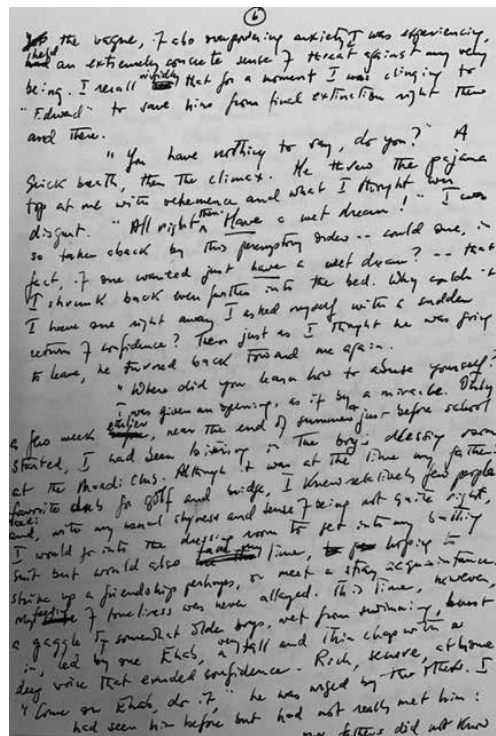 6
the vague, if also overpowering anxiety I was experiencing,
held an extremely concrete sense of threat against my very
being. I recall vividly that for a moment I was clinging to
"Edward" to save him from final extinction right there
and there.
"You have nothing to say, do you?" A
quick breath, then the climax. He threw the pajama
top at me with vehemence and what I thought was
disgust. "All right then. Have a wet dream!" I was
so taken aback by this peremptory order -- could one, in
fact, if one wanted just have a wet dream? -- that
I shrunk back even further into the bed. Why couldn't
I have one right away I asked myself with a sudden
return of confidence? Then just as I thought he was going
to leave, he turned back toward me again.
"Where did you learn how to abuse yourself?"
I was given an opening, as if by a miracle. Only
a few week earlier, near the end of summer just before school
started, I had been in the boy's dressing room
at the Maadi Club. Although it was at the time my father's
favorite club for golf and bridge, I knew relatively few people
and, with my usual shyness and sense of being not quite right,
I would go into the dressing room to get into my bathing
suit but would also time, hoping to
strike up a friendship perhaps, or meet a stray acquaintance.
My feeling of loneliness was never allayed. This time, however,
a gaggle of somewhat older boys, wet from swimming, burst
in, led by one Ehab, a very tall and thin chap with a
deep voice that exuded confidence. Rich, secure, at home
"Come on Ehab, do it," he was urged by the others. I
had seen him before but had not really met him:
our fathers did not know